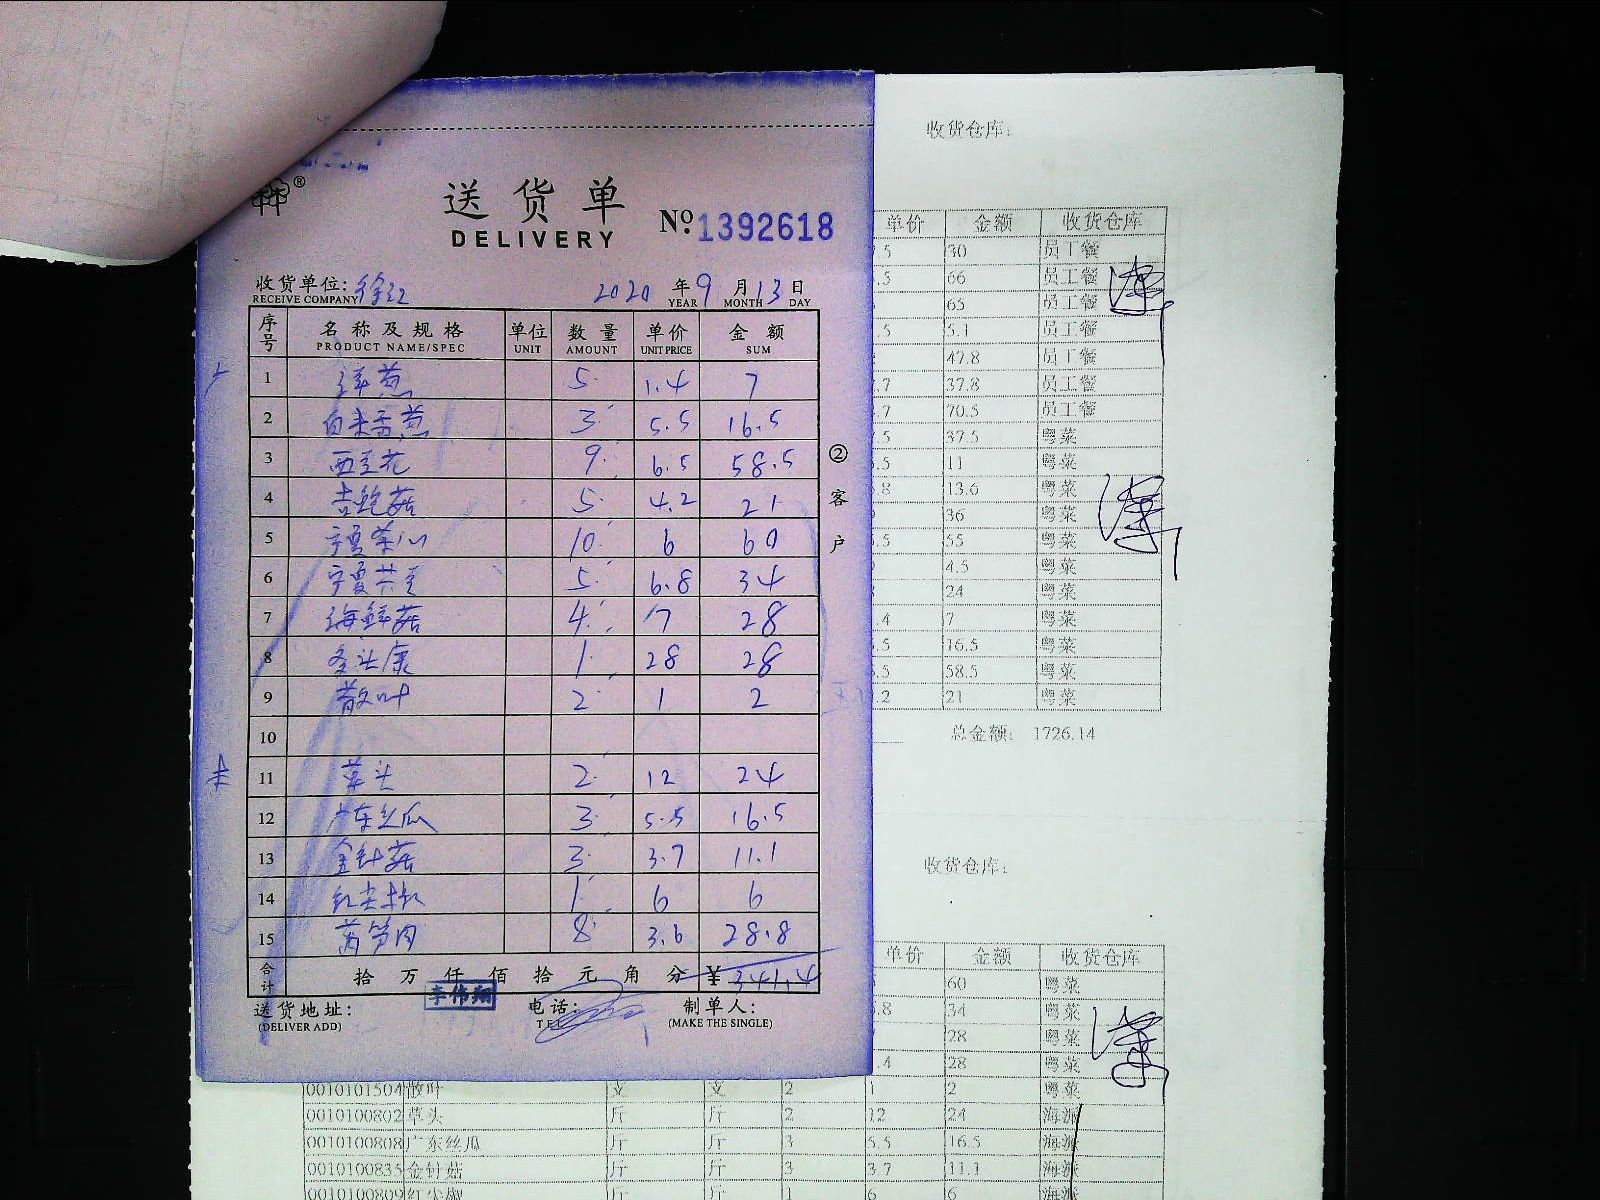 送货单
DELIVERY
№ 1392618
收货单位: 徐汇 2020 年 9 月 13 日
RECEIVE COMPANY YEAR MONTH DAY
序号 名称及规格 单位 数量 单价 金额
PRODUCT NAME/SPEC UNIT AMOUNT UNIT PRICE SUM
1 洋葱 5 1.4 7
2 白来香葱 3 5.5 16.5
3 西兰花 9 6.5 58.5
4 杏鲍菇 5 4.2 21
5 宁夏菜心 10 6 60
6 宁夏芥兰 5 6.8 34
7 海鲜菇 4 7 28
8 28 28
9 散叶 2 1 2
10
11 草头 2 12 24
12 广东丝瓜 3 5.5 16.5
13 金针菇 3 3.7 11.1
14 红尖椒 1 6 6
15 莴笋肉 8 3.6 28.8
合计 拾 万 仟 佰 拾 元 角 分 ¥ 341.4
李伟翔
送货地址: 电话: 制单人:
(DELIVER ADD) TEL (MAKE THE SINGLE)
② 客户
收货仓库:
单价 金额 收货仓库
.5 30 员工餐
.5 66 员工餐
63 员工餐
.5 5.1 员工餐
47.8 员工餐
.7 37.8 员工餐
.7 70.5 员工餐
.5 37.5 粤菜
.5 11 粤菜
.8 13.6 粤菜
36 粤菜
.5 55 粤菜
4.5 粤菜
24 粤菜
.4 7 粤菜
.5 16.5 粤菜
.5 58.5 粤菜
.2 21 粤菜
总金额: 1726.14
收货仓库:
单价 金额 收货仓库
60 粤菜
.8 34 粤菜
28 粤菜
.4 28 粤菜
0010101504 散叶 支 支 2 1 2 粤菜
0010100802 草头 斤 斤 2 12 24 海派
0010100808 广东丝瓜 斤 斤 3 5.5 16.5 海派
0010100835 金针菇 斤 斤 3 3.7 11.1 海派
0010100809 红尖椒 斤 斤 1 6 6 海派